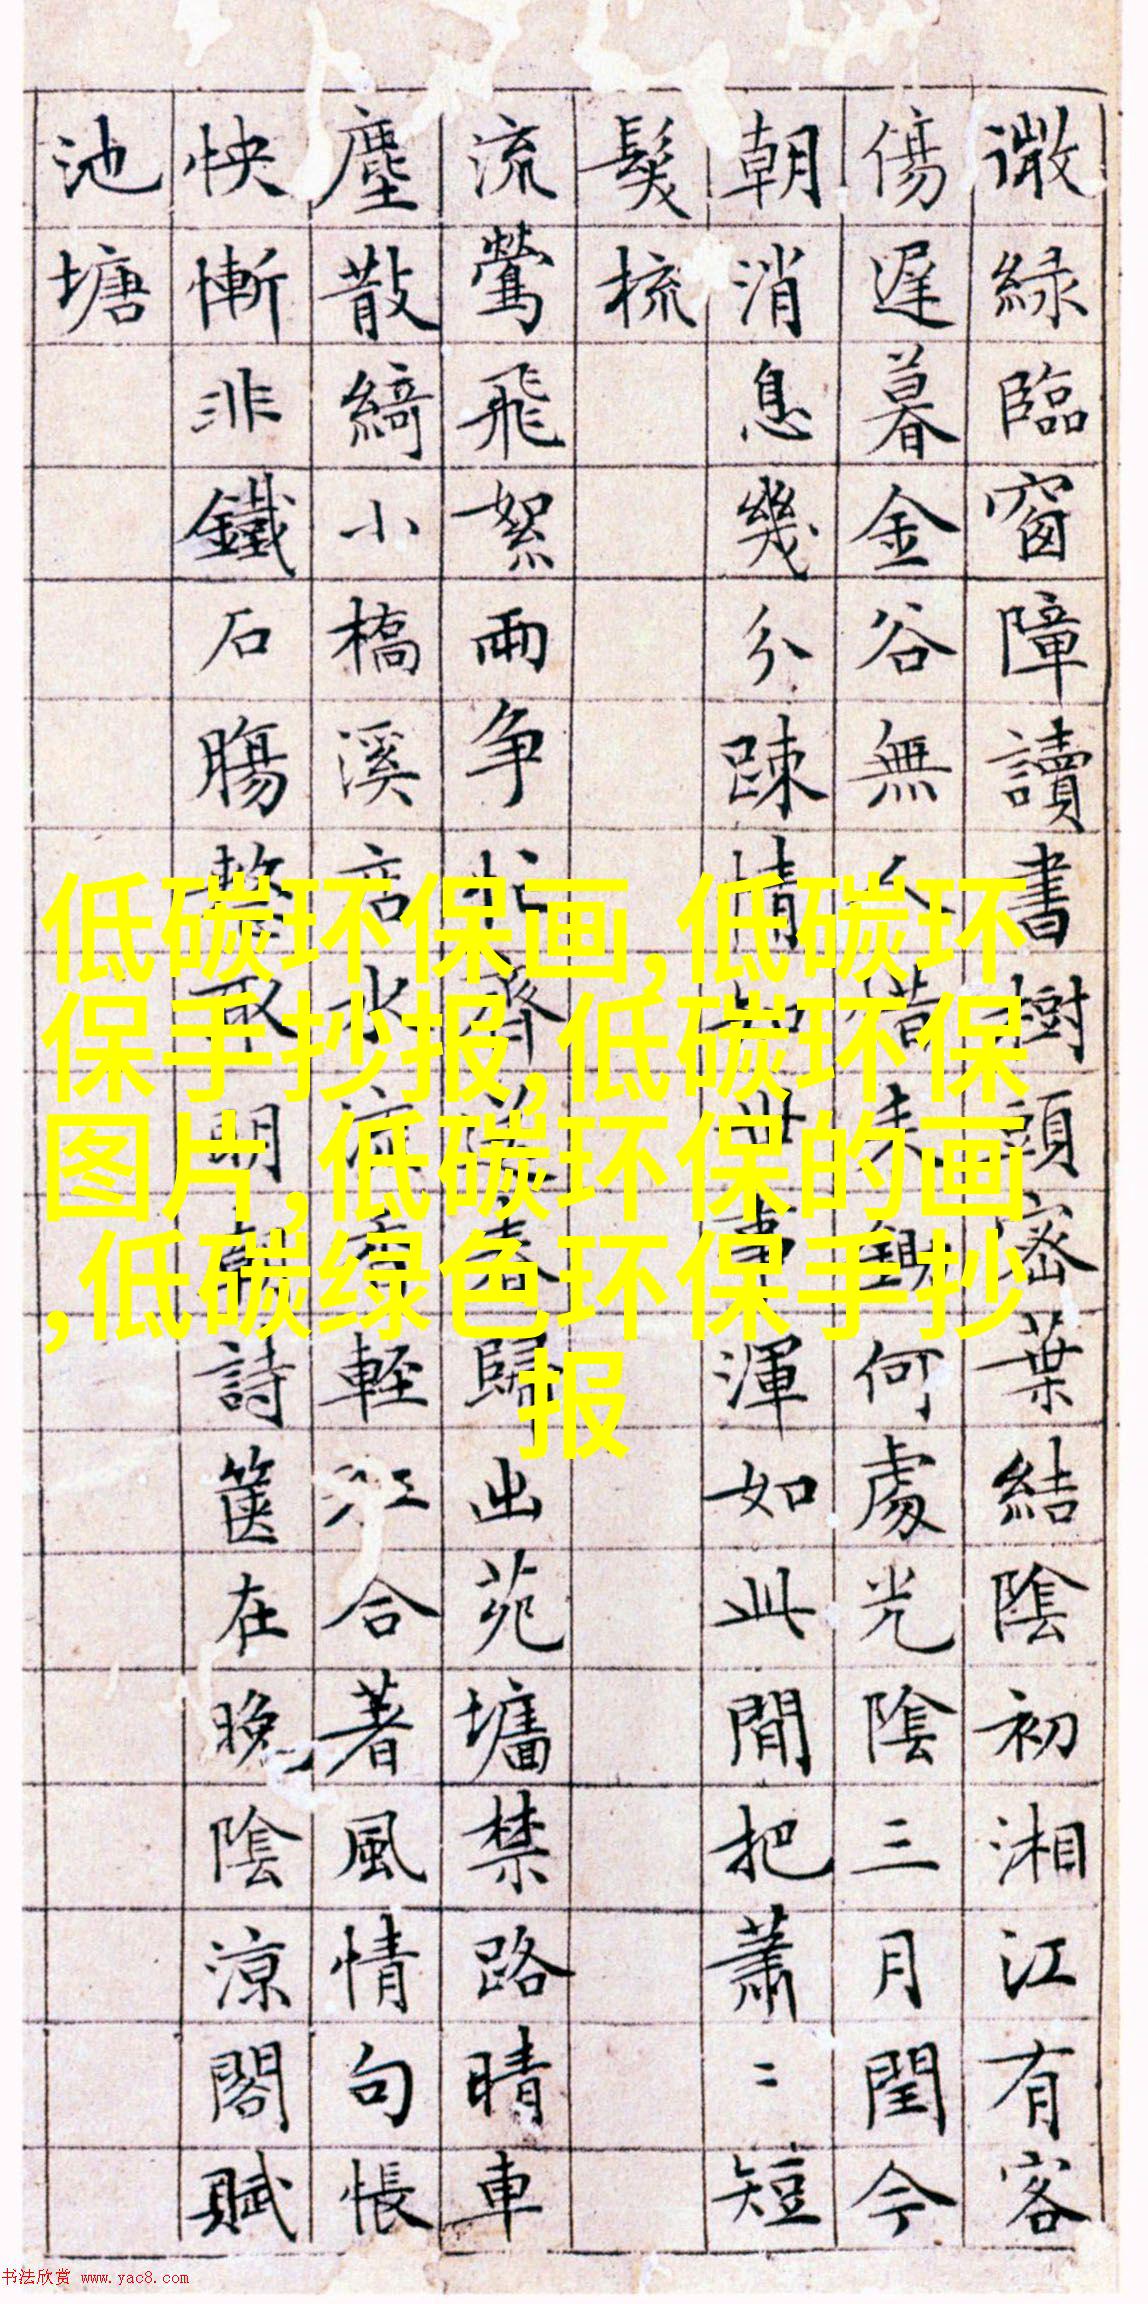 微綠臨窗障讀書樹頭密葉結陰初湘江有客
傷遲暮金谷無人未鋤何處光陰三月閏今
朝消息幾分疎情世事渾如此間把蕭〻短
髮梳
流鶯飛絮兩争忙齊送春歸出苑墻禁路晴車
塵散綺小橋溪店水流香輕江合著風情句悵
怏慚非鐵石腸整取明朝詩篋在晚陰涼閣賦
池塘
低碳环保画,低碳环
保手抄报,低碳环保
图片,低碳环保的画
,低碳绿色环保手抄
报
书法欣赏 www.yac8.com